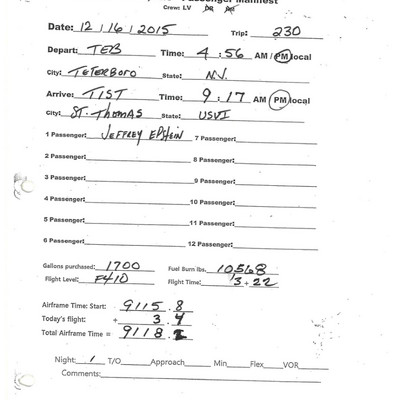 Passenger Manifest
Crew: LV
Date: 12/16/2015 Trip: 230
Depart: TEB Time: 4:56 AM / PM local
City: TETERBORO State: N.V.
Arrive: TIST Time: 9:17 AM PM local
City: ST. THOMAS State: USVI
1 Passenger: JEFFREY EPSTEIN 7 Passenger:
2 Passenger: 8 Passenger:
3 Passenger: 9 Passenger:
4 Passenger: 10 Passenger:
5 Passenger: 11 Passenger:
6 Passenger: 12 Passenger:
Gallons purchased: 1700 Fuel Burn lbs. 10,568
Flight Level: F410 Flight Time: 3+22
Airframe Time: Start: 9115.8
Today's flight: + 3.4
Total Airframe Time = 9118.
Night: 1 T/O Approach Min Flex VOR
Comments: